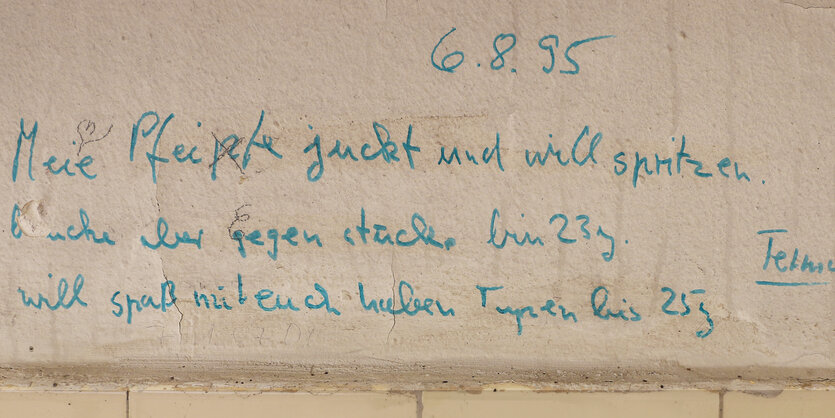 6.8.95
Meie Pfeiffe juckt und will spritzen.
suche aber gegen stücke. bin 23 J.
will spaß mit euch haben Typen bis 25 J